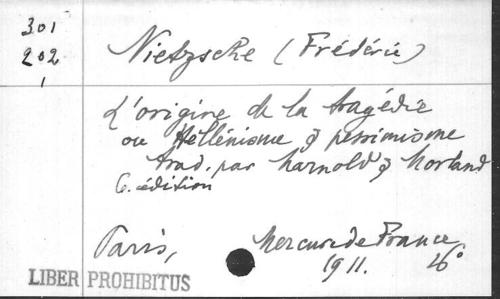 301
202
1
Nietzsche (Frédéric)
L'origine de la tragédie
ou Hellénisme & pessimisme
trad. par Marnold & Morland
6. édition
Paris, Mercure de France
1911. 16°
LIBER PROHIBITUS